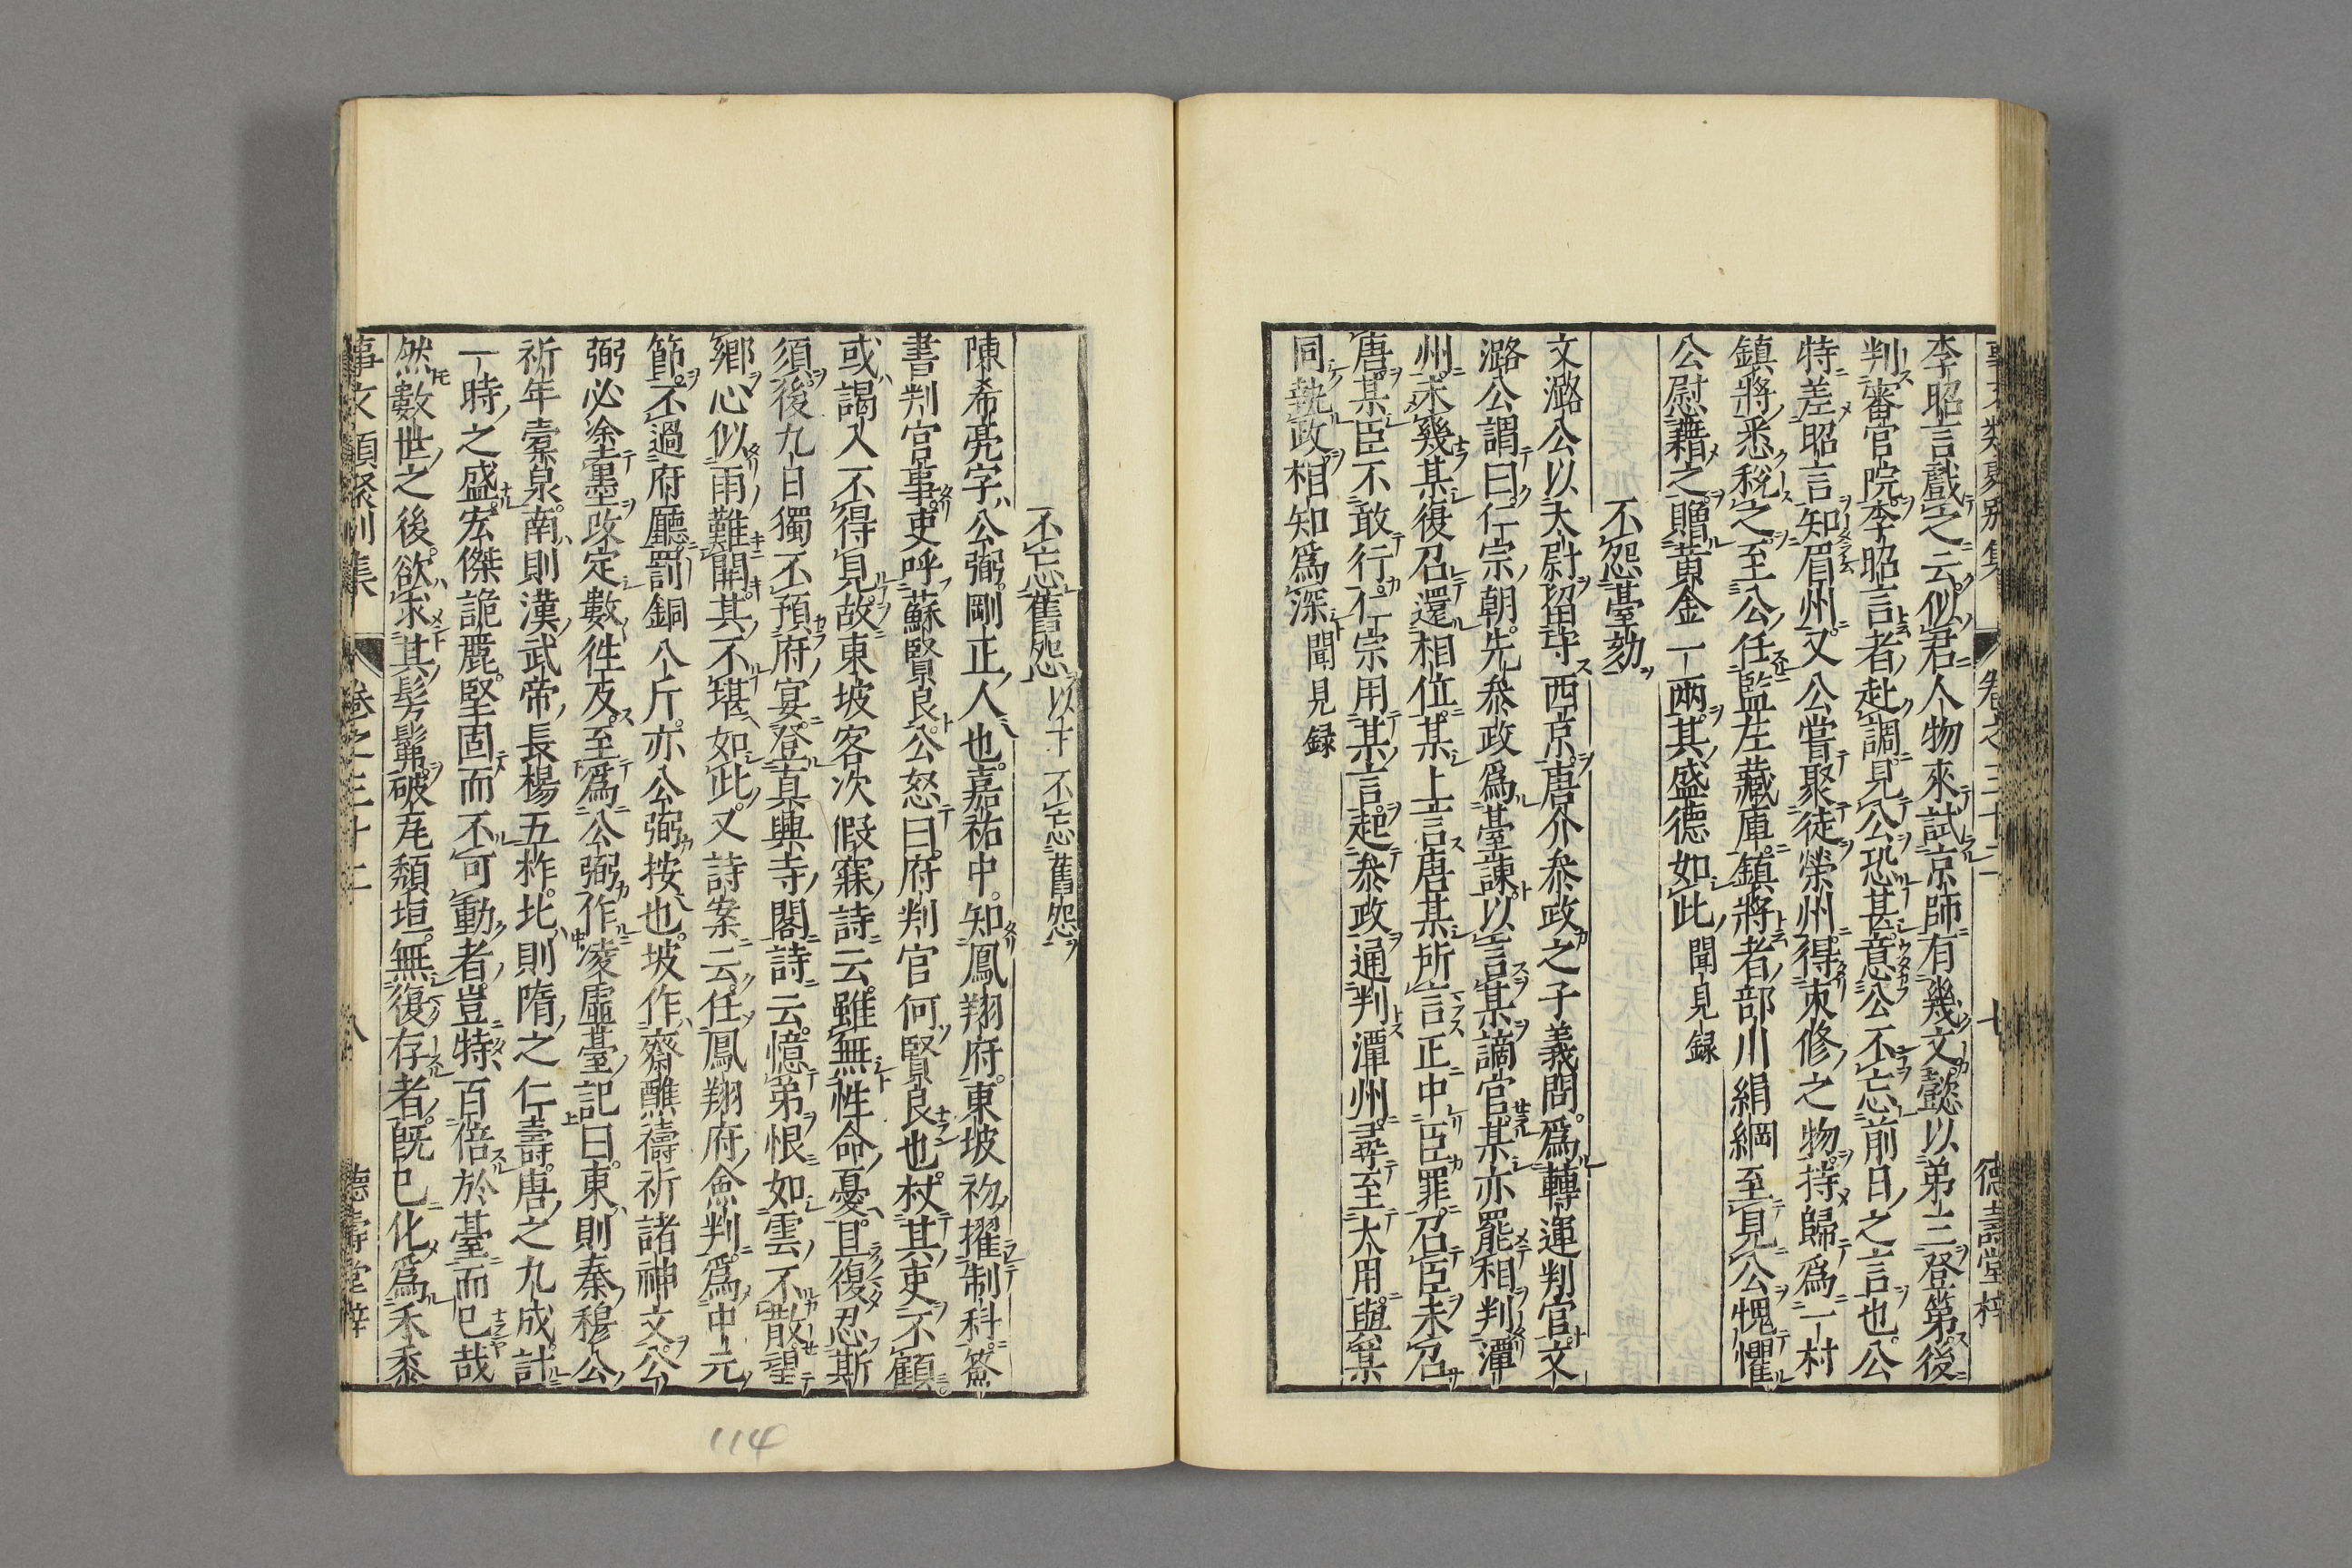 李昭言戲之云似君人物來試京師有幾文懿以弟三登第後
判審官院李昭言者赴調見公恐甚意公不忘前日之言也公
特差昭言知眉州又公嘗聚徒榮州得束修之物持歸爲一村
鎮將悉稅之至公任監左藏庫鎮將者部川絹綱至見公愧懼
公慰藉之贈黃金一兩其盛德如此聞見録
不怨臺劾
文潞公以太尉留守西京唐介參政之子義問爲轉運判官文
潞公謂曰仁宗朝先參政爲臺諫以言某謫官某亦罷相判潭
州未幾某復召還相位某上言唐某所言正中臣罪召臣未召
唐某臣不敢行仁宗用某言起參政通判潭州尋至大用與某
同執政相知爲深聞見録
不忘舊怨以下不忘舊怨
陳希亮字公弼剛正人也嘉祐中知鳳翔府東坡初擢制科簽
書判官事吏呼蘇賢良公怒曰府判官何賢良也杖其吏不顧
或謁入不得見故東坡客次假寐詩云雖無性命憂且復忍斯
須後九日獨不預府宴登真興寺閣詩云憶弟恨如雲不散望
鄉心似雨難開其不堪如此又詩案云任鳳翔府僉判爲中元
節不過府廳罰銅八斤亦公弼按也坡作齋醮禱祈諸神文公
弼必塗墨改定數徃反至爲公弼作凌虛臺記曰東則秦穆公
祈年橐泉南則漢武帝長楊五柞北則隋之仁壽唐之九成計
一時之盛宏傑詭麗堅固而不可動者豈特百倍於臺而已哉
然數世之後欲求其髣髴破瓦頽垣無復存者既已化爲禾黍
事文類聚別集 卷之三十二 八 德壽堂梓